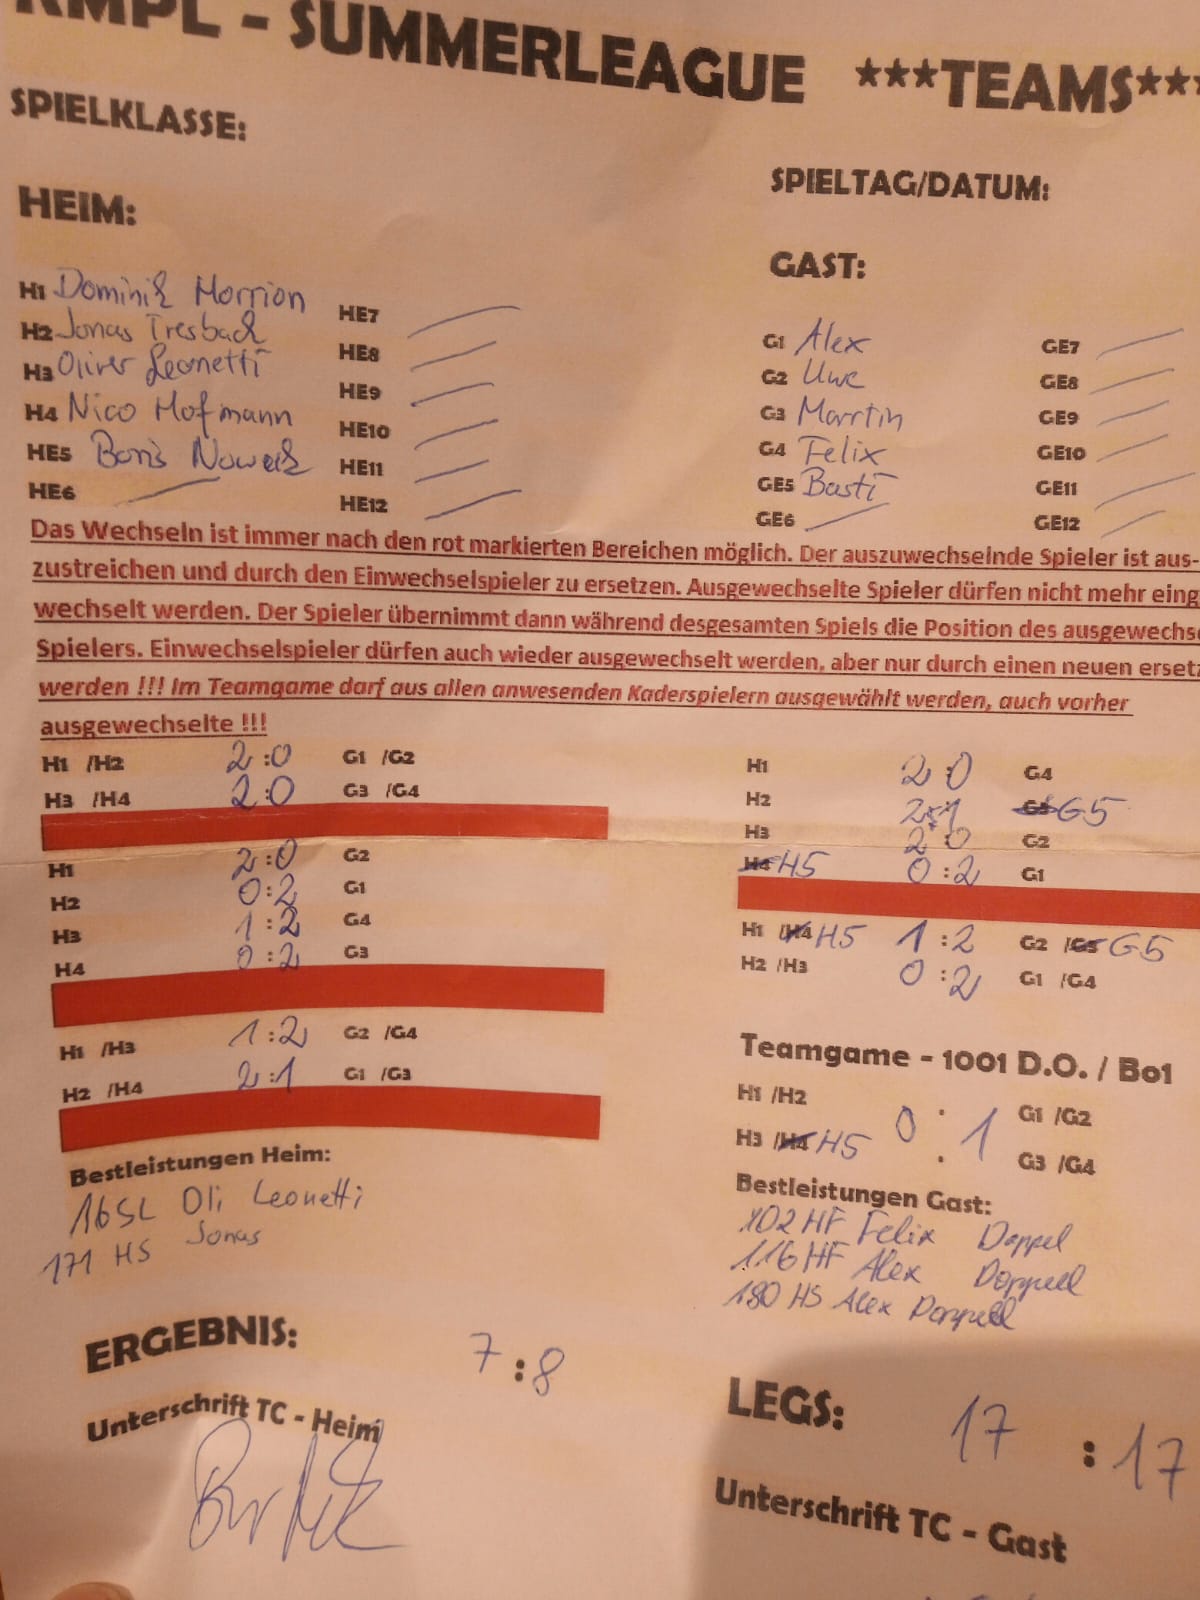 RMPL - SUMMERLEAGUE ***TEAMS***
SPIELKLASSE:
SPIELTAG/DATUM:
HEIM:
GAST:
H1 Dominik Morrion
H2 Jonas Tresbach
H3 Oliver Leonetti
H4 Nico Hofmann
HE5 Boris Nowak
HE6
HE7
HE8
HE9
HE10
HE11
HE12
G1 Alex
G2 Uwe
G3 Marrtin
G4 Felix
GE5 Basti
GE6
GE7
GE8
GE9
GE10
GE11
GE12
Das Wechseln ist immer nach den rot markierten Bereichen möglich. Der auszuwechselnde Spieler ist aus-
zustreichen und durch den Einwechselspieler zu ersetzen. Ausgewechselte Spieler dürfen nicht mehr eing
wechselt werden. Der Spieler übernimmt dann während desgesamten Spiels die Position des ausgewechse
Spielers. Einwechselspieler dürfen auch wieder ausgewechselt werden, aber nur durch einen neuen ersetz
werden !!! Im Teamgame darf aus allen anwesenden Kaderspielern ausgewählt werden, auch vorher
ausgewechselte !!!
H1 /H2 2:0 G1 /G2
H3 /H4 2:0 G3 /G4
H1 2:0 G2
H2 0:2 G1
H3 1:2 G4
H4 0:2 G3
H1 /H3 1:2 G2 /G4
H2 /H4 2:1 G1 /G3
H1 2:0 G4
H2 2:1 G3 G5
H3 2:0 G2
H4 H5 0:2 G1
H1 /H4 H5 1:2 G2 /G3 G5
H2 /H3 0:2 G1 /G4
Teamgame - 1001 D.O. / Bo1
H1 /H2 G1 /G2
0:1
H3 /H4 H5 G3 /G4
Bestleistungen Heim:
16SL Oli Leonetti
171 HS Jonas
Bestleistungen Gast:
102 HF Felix Doppel
116 HF Alex Doppell
180 HS Alex Doppell
ERGEBNIS: 7:8
LEGS: 17:17
Unterschrift TC - Heim
Unterschrift TC - Gast